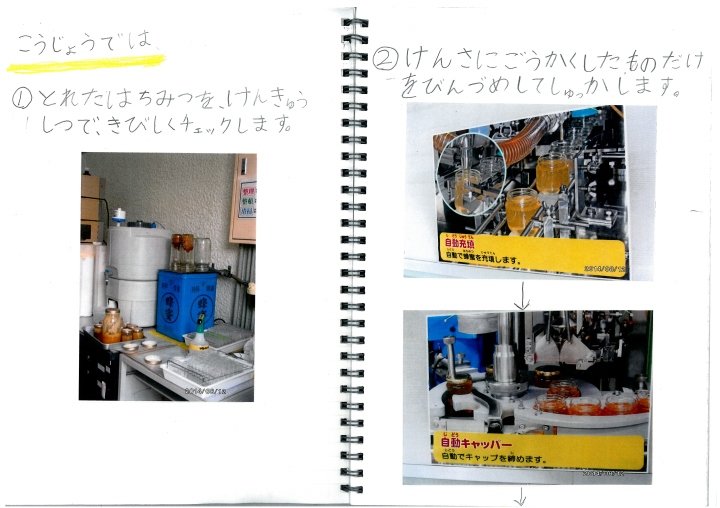 こうじょうでは、
①とれたはちみつを、けんきゅう
しつで、きびしくチェックします。
蜂蜜
蜂蜜
2014/06/12
②けんさにごうかくしたものだけ
をびんづめしてしゅっかします。
自動充填
自動で蜂蜜を充填します。
2014/06/12
↓
じどう
自動キャッパー
自動でキャップを締めます。
2014/06/12
↓